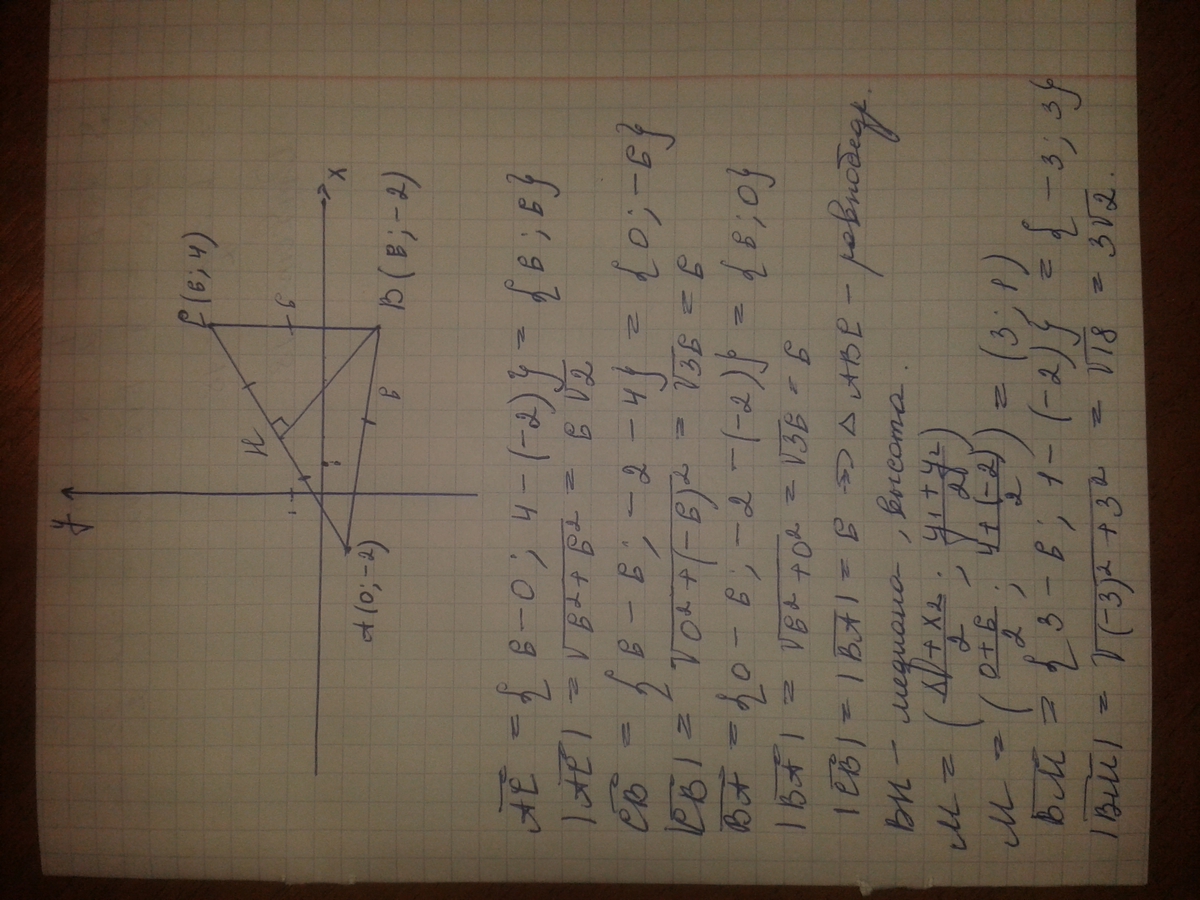 y
C (6; 4)
H
6
x
A (0; -2)
B (6; -2)
6
AC = { 6 - 0; 4 - (-2) } = { 6; 6 }
|AC| = √6² + 6² = 6√2
CB = { 6 - 6; -2 - 4 } = { 0; -6 }
|CB| = √0² + (-6)² = √36 = 6
BA = { 0 - 6; -2 - (-2) } = { 6; 0 }
|BA| = √6² + 0² = √36 = 6
|CB| = |BA| = 6 ⇒ △ ABC - равнобедр.
BH - медиана, высота.
M = ( x₂ / 2 ; y₁ + y₂ / 2 )
M = ( 0 + 6 / 2 ; 4 + (-2) / 2 ) = (3; 1)
BM = { 3 - 6; 1 - (-2) } = { -3; 3 }
|BM| = √(-3)² + 3² = √18 = 3√2.